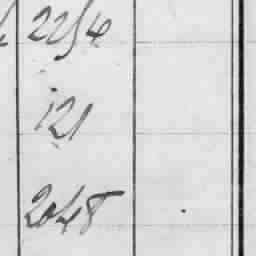 2254
121
2048